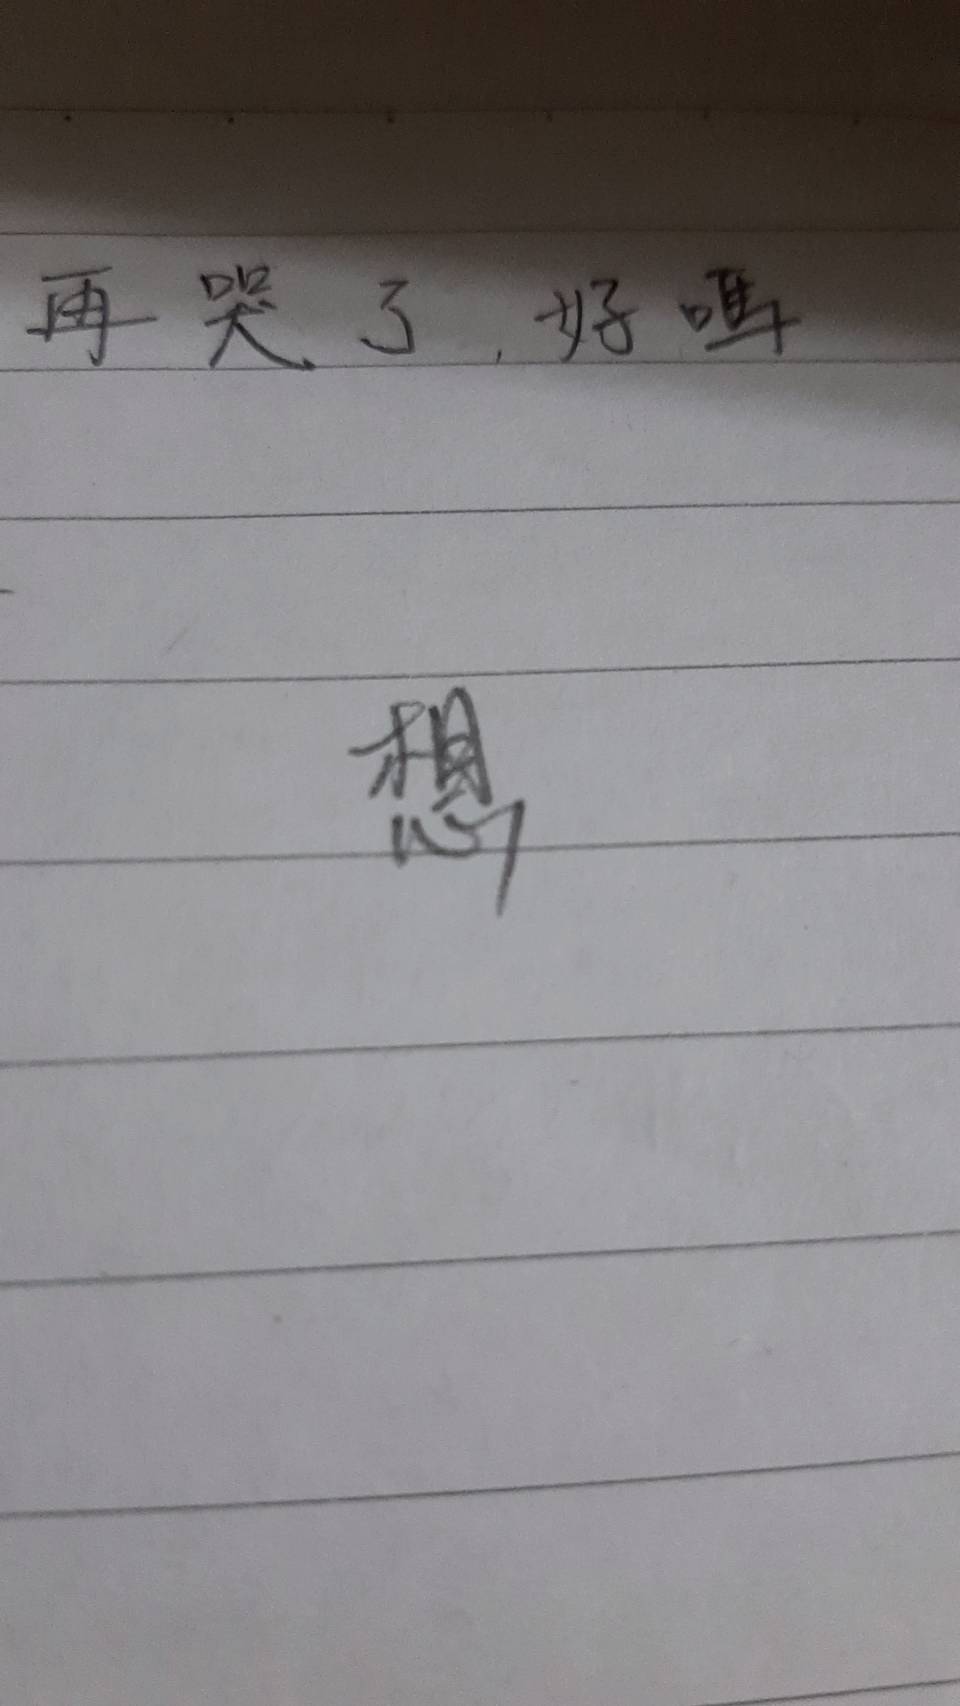 再哭了,好嗎
想